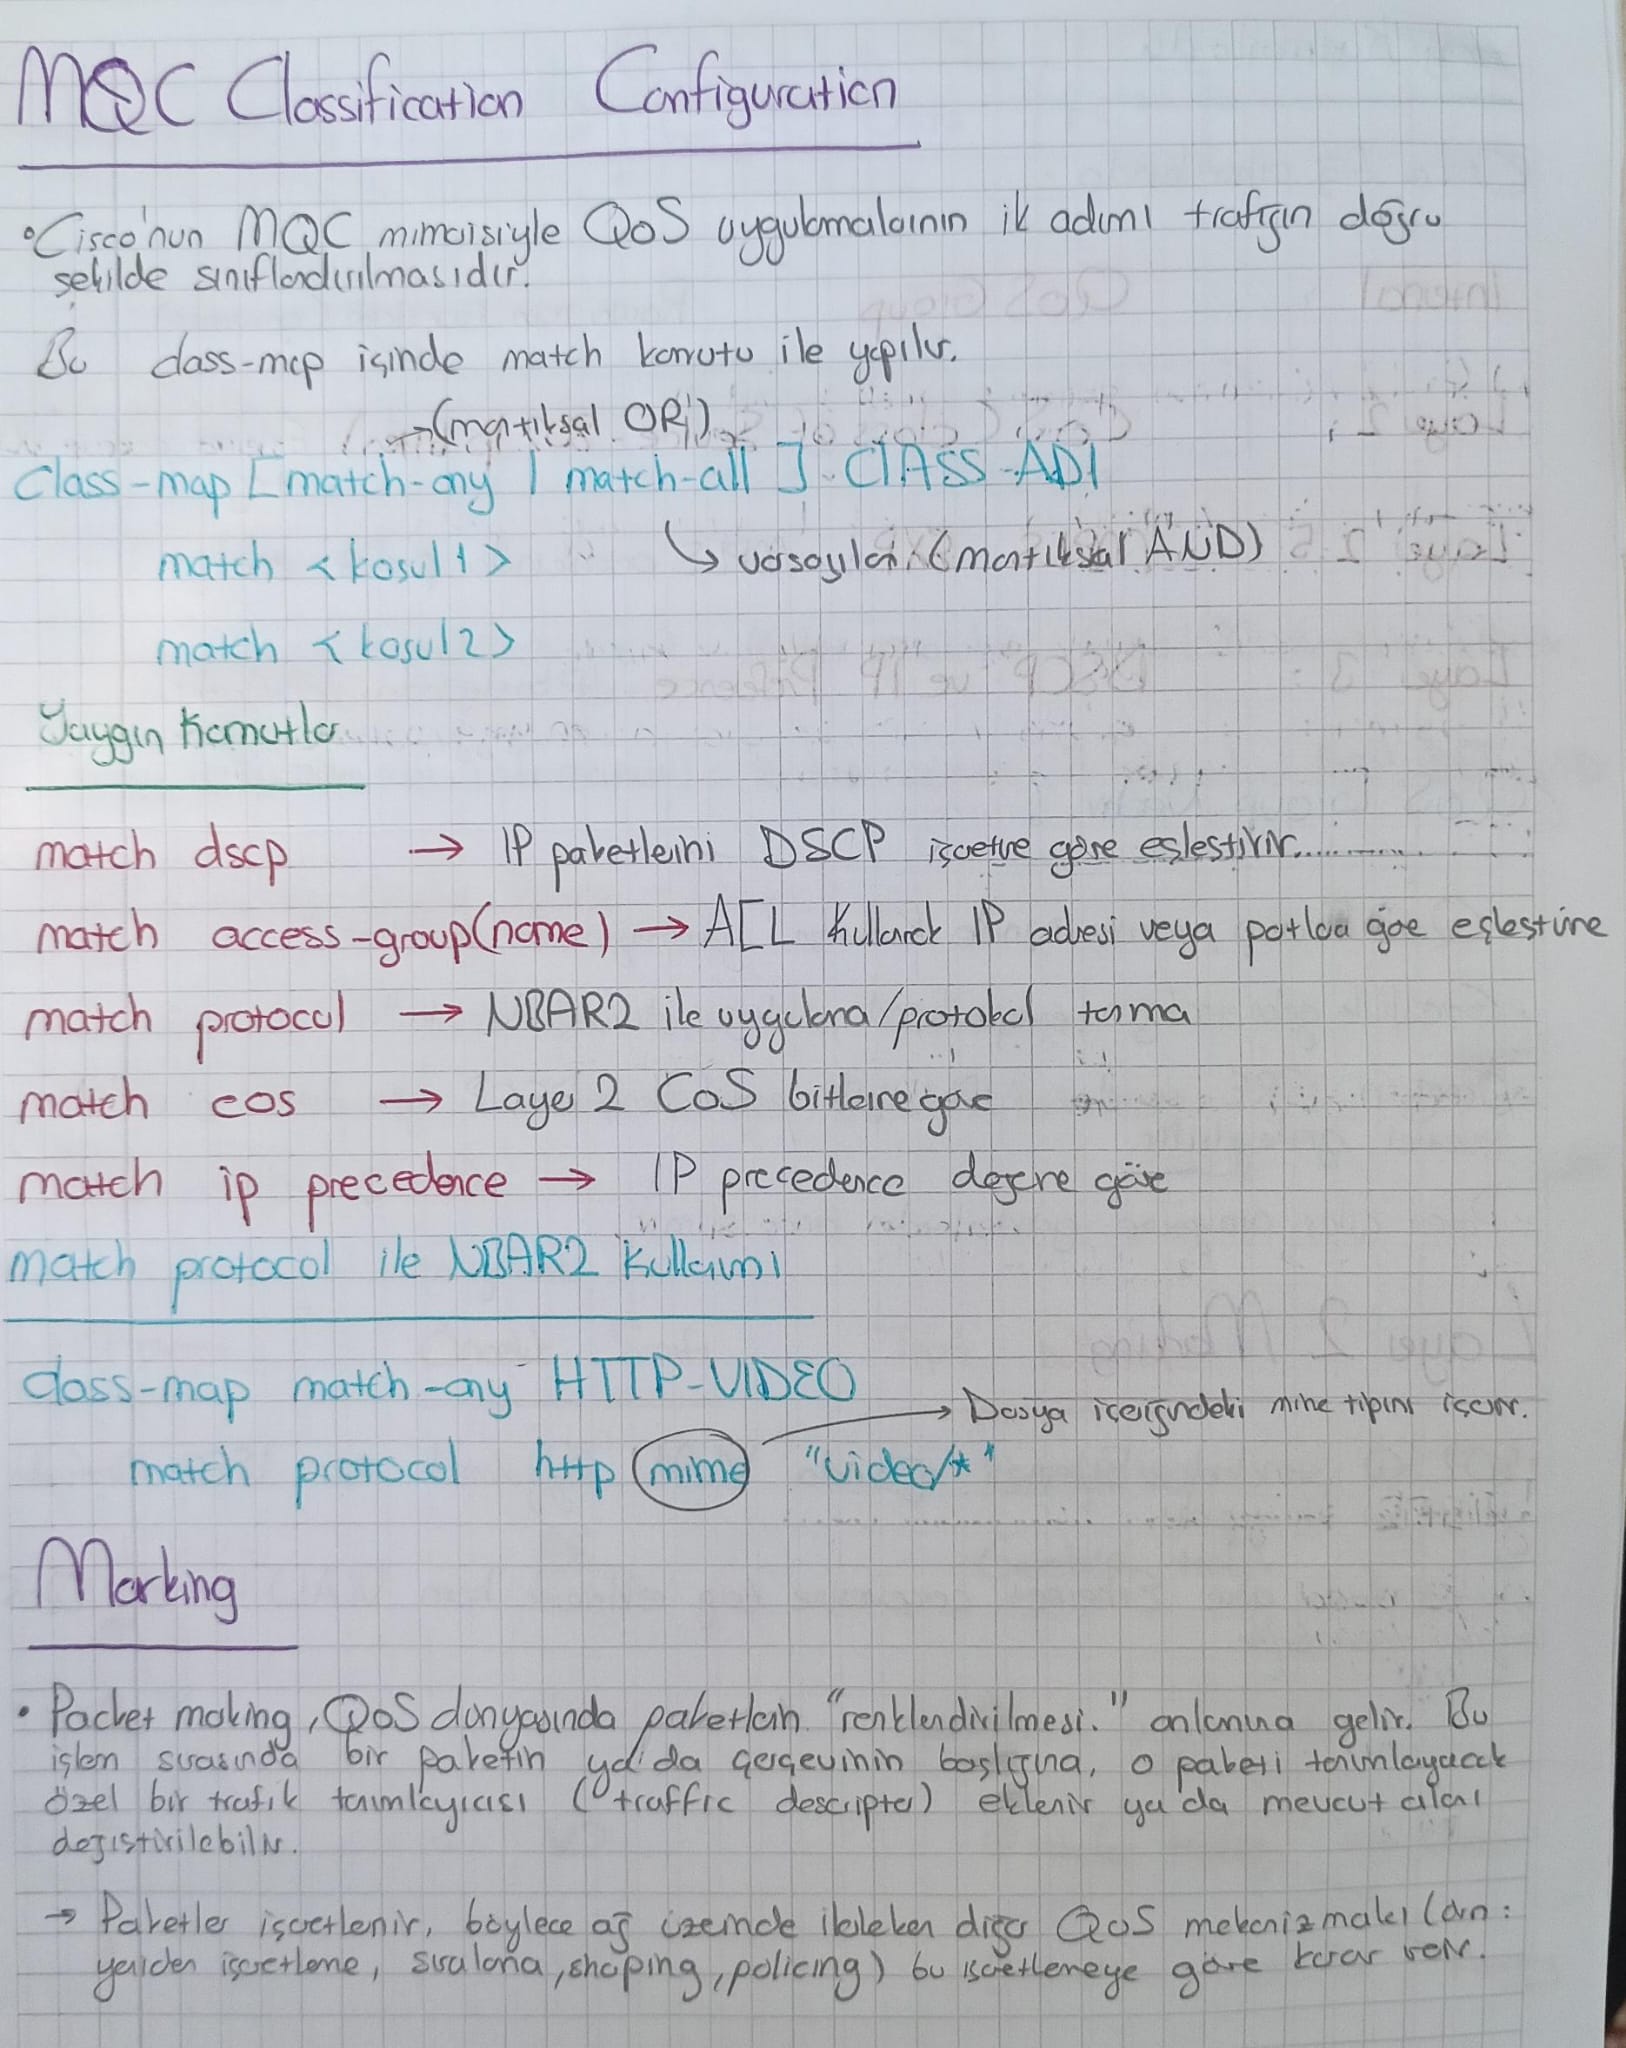 MQC Classification Configuration
• Cisco'nun MQC mimarisiyle QoS uygulamalarının ilk adımı trafiğin doğru
şekilde sınıflandırılmasıdır.
Bu class-map içinde match komutu ile yapılır.
→ (mantıksal OR')
Class-map [match-any | match-all] CLASS-ADI
↳ varsayılan (mantıksal AND)
match <kosul1>
match <kosul2>
Yaygın Komutlar
match dscp → IP paketlerini DSCP işaretine göre eşleştirir.
match access-group(name) → ACL kullanarak IP adresi veya portlara göre eşleştirme
match protocol → NBAR2 ile uygulama/protokol tanıma
match cos → Layer 2 CoS bitlerine göre
match ip precedence → IP precedence değerine göre
match protocol ile NBAR2 kullanımı
class-map match-any HTTP-VIDEO
→ Dosya içeriğindeki mime tipini içerir.
match protocol http mime "video/*"
Marking
• Packet marking, QoS dünyasında paketlerin "renklendirilmesi." anlamına gelir. Bu
işlem sırasında bir paketin ya da çerçevinin başlığına, o paketi tanımlayacak
özel bir trafik tanımlayıcısı (traffic descriptor) eklenir ya da mevcut alanı
değiştirilebilir.
→ Paketler işaretlenir, böylece ağ üzerinde ilerleken diğer QoS mekanizmaları (örn:
yeniden işaretleme, sıralama, shaping, policing) bu işaretlemeye göre karar verir.